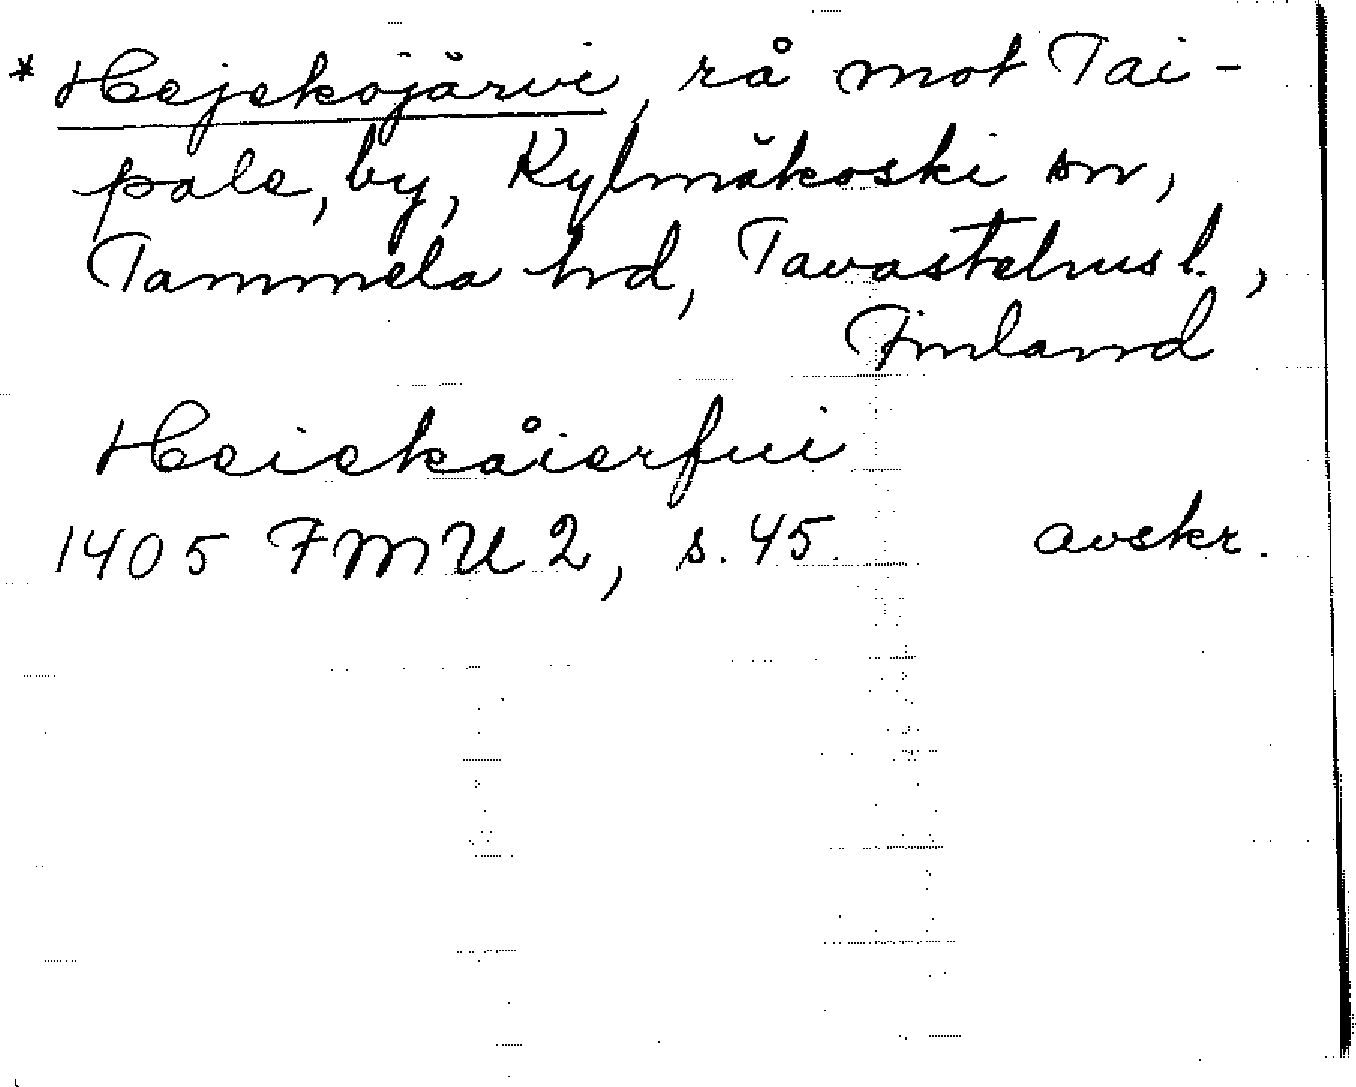 * Hejekojärvi, rå mot Tai-
pale, by, Kylmäkoski sn,
Tammela hd, Tavastehus l.,
Finland
Heiekåierfui
1405 FMU 2, s. 45. avskr.